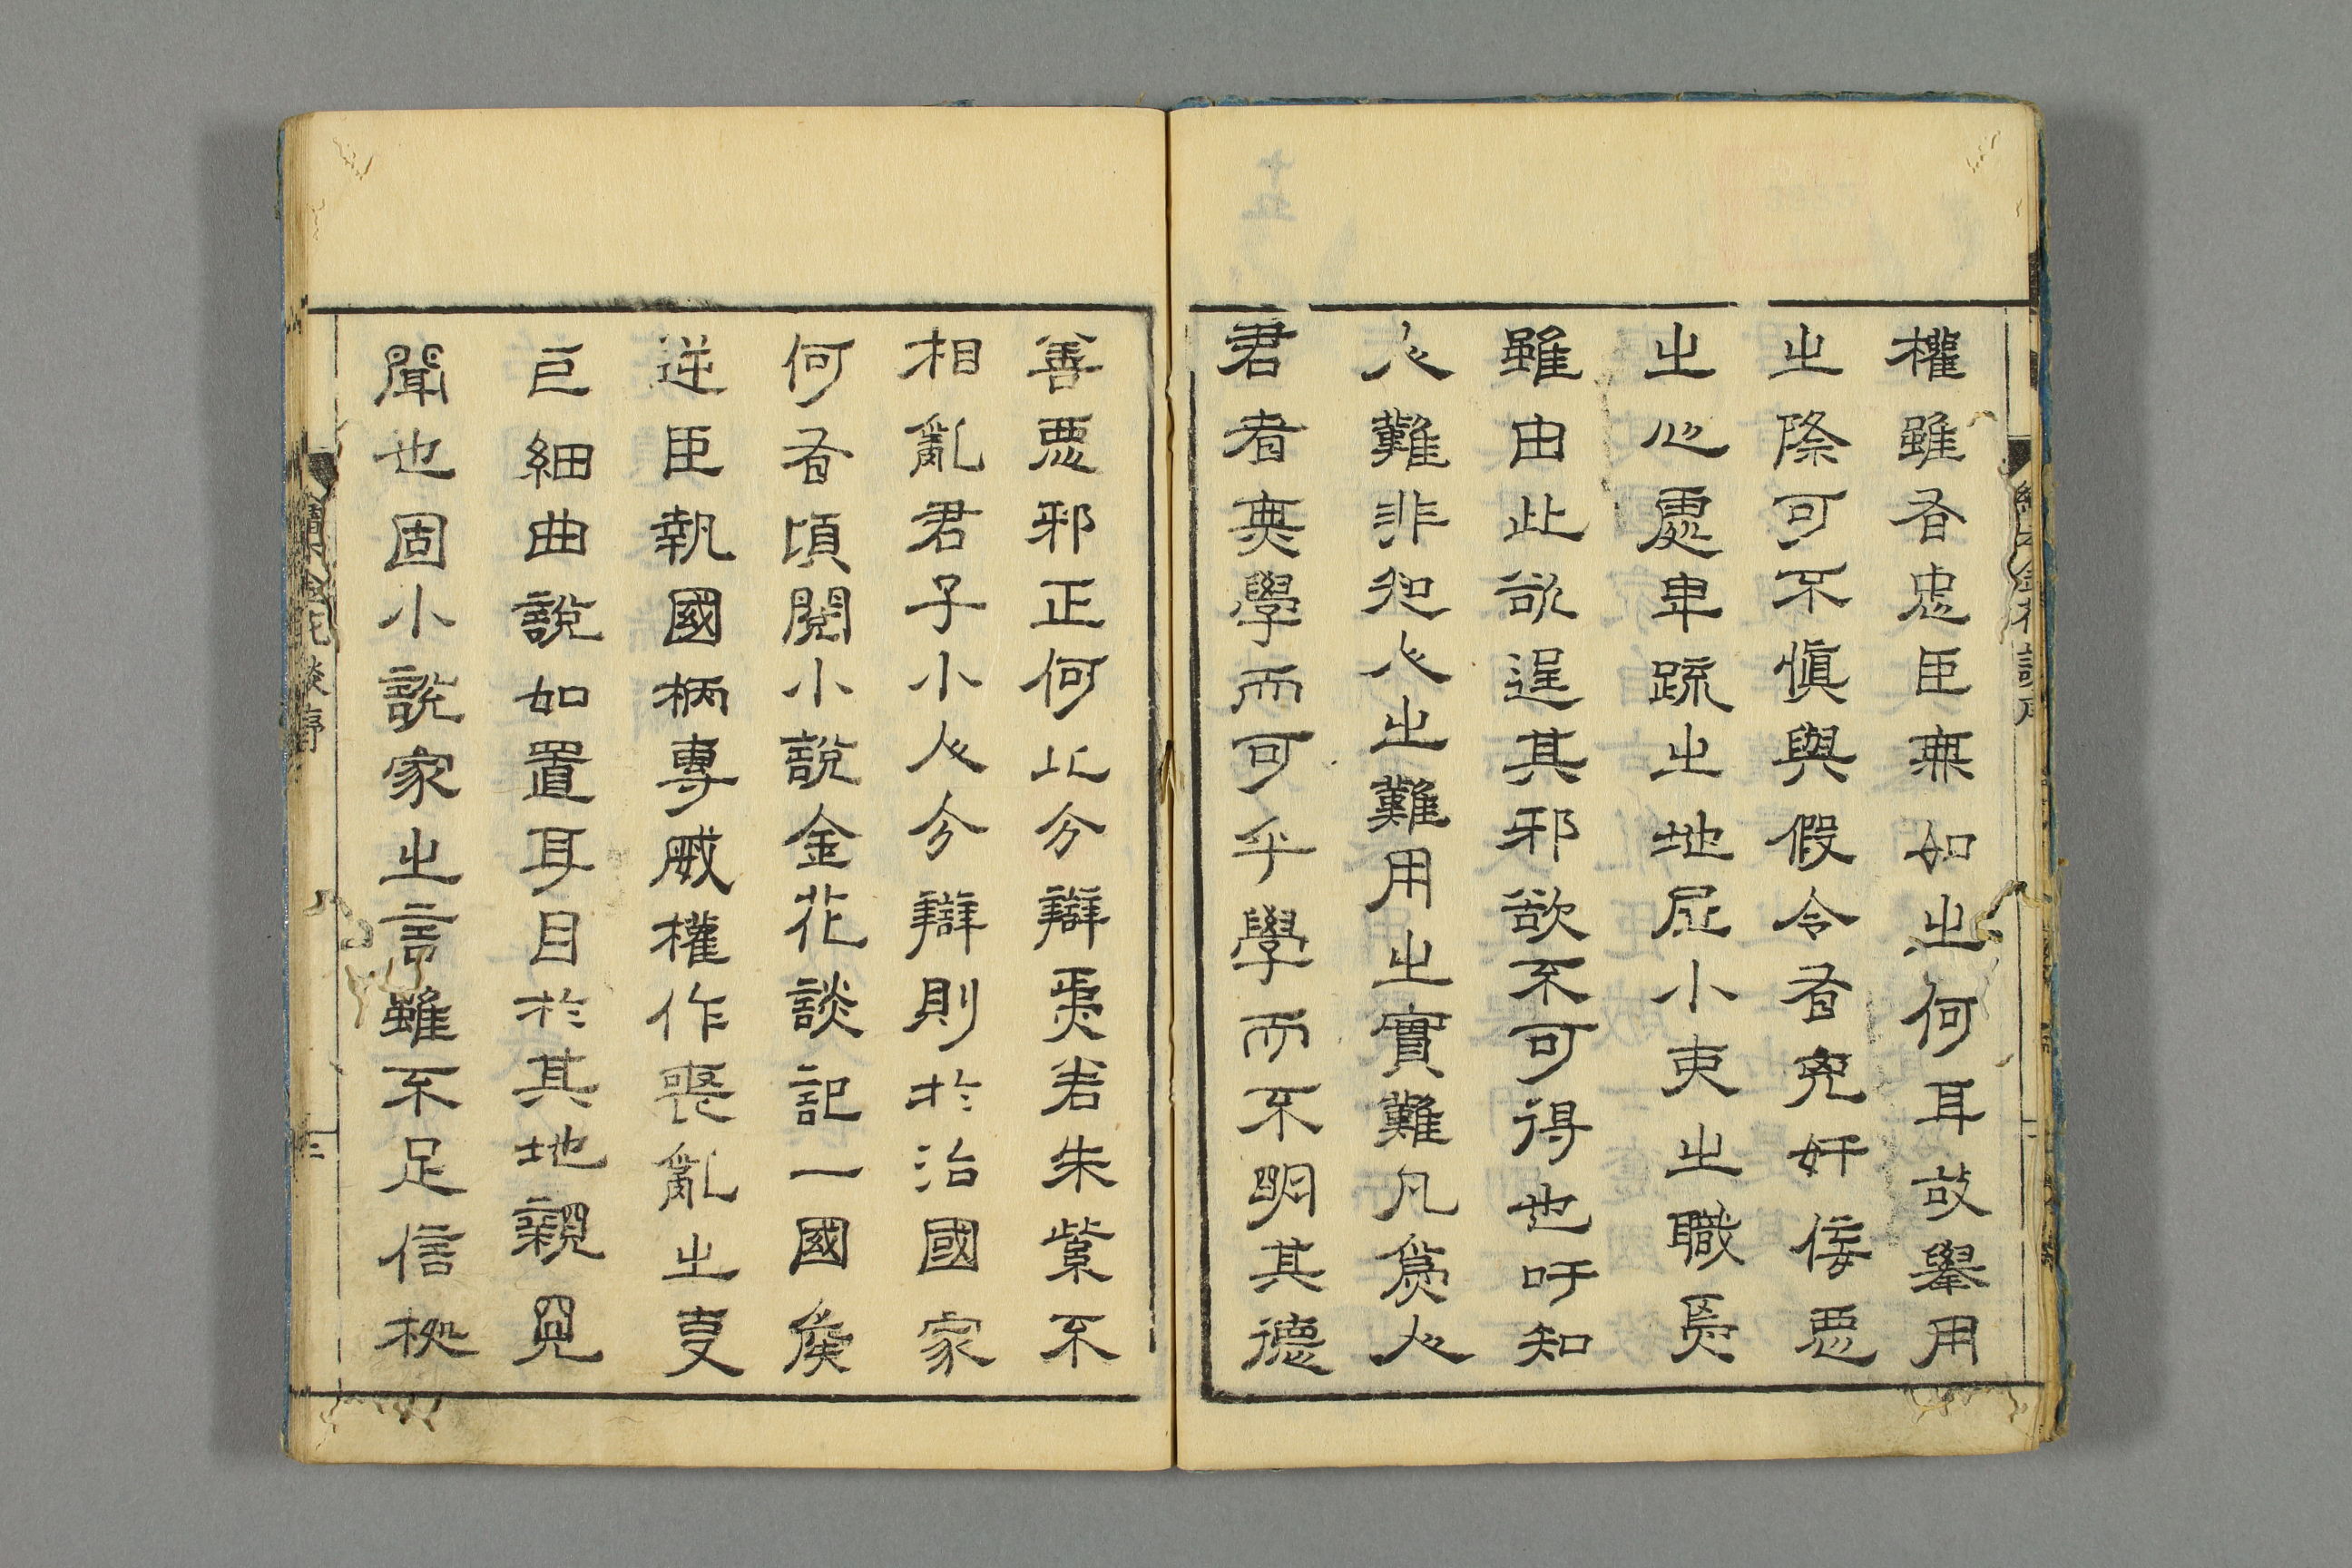 權雖有忠臣無如之何耳故擧用
之際可不愼與假令有兇奸佞惡
之心處卑疏之地居小吏之職焉
雖由此欲逞其邪欲不可得也吁知
人難非人之難用之實難凡爲人
君者無學而可乎學而不明其德
善惡邪正何以分辯焉若朱紫不
相亂君子小人分辯則於治國家
何有頃閲小說金花談記一國侯
逆臣執國柄專威權作喪亂之事
巨細曲說如置耳目於其地親見
聞也固小說家之言雖不足信拠
談序
三